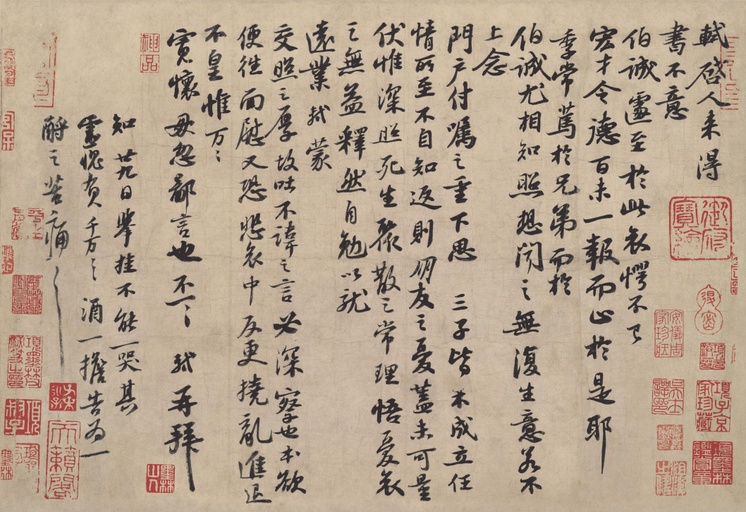 軾啓人來得
書不意
伯誠遽至於此哀愕不已
宏才令德百未一報而止於是耶
季常篤於兄弟而於
伯誠尤相知照想聞之無復生意若不
上念
門户付囑之重下思三子皆未成立任
情所至不自知返則朋友之憂蓋未可量
伏惟深照死生聚散之常理悟憂哀
之無益釋然自勉以就
遠業軾蒙
交照之厚故吐不諱之言必深察也本欲
便往面慰又恐悲哀中反更撓亂進退
不皇惟万万
寬懷毋忽鄙言也不一一軾再拜
知廿九日舉挂不能一哭其
靈愧負千万千万酒一擔告為一
酹之苦痛苦痛
御府寶繪
項子京家珍藏
神品
天籟閣